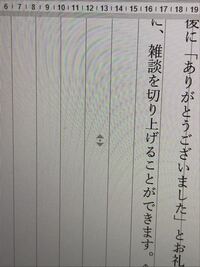 6 7 8 9 10 11 12 13 14 15 16 17 18 19
後に「ありがとうございました」とお礼
に、雑談を切り上げることができます。